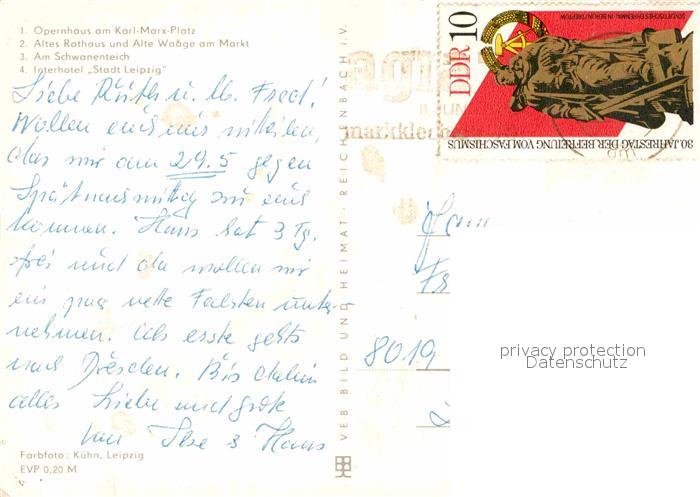 1. Opernhaus am Karl-Marx-Platz
2. Altes Rathaus und Alte Waage am Markt
3. Am Schwanenteich
4. Interhotel „Stadt Leipzig"
Liebe Käthe u. lb. Fred!
Wollen euch nur mitteilen,
das wir am 29.5 gegen
Spätnachmittag zu euch
kommen. Hans hat 3 Tg.
frei und da wollen wir
ein paar nette Fahrten unter-
nehmen. Als erste gehts
nach Dresden. Bis dahin
alles Liebe und Grüße
von Ilse & Hans
Farbfoto: Kühn, Leipzig
EVP 0,20 M
VEB BILD UND HEIMAT · REICHENBACH i. V.
DDR 10
SOWJETISCHES EHRENMAL IN BERLIN-TREPTOW
30. JAHRESTAG DER BEFREIUNG VOM FASCHISMUS
agra
markkleeberg
8019
privacy protection
Datenschutz